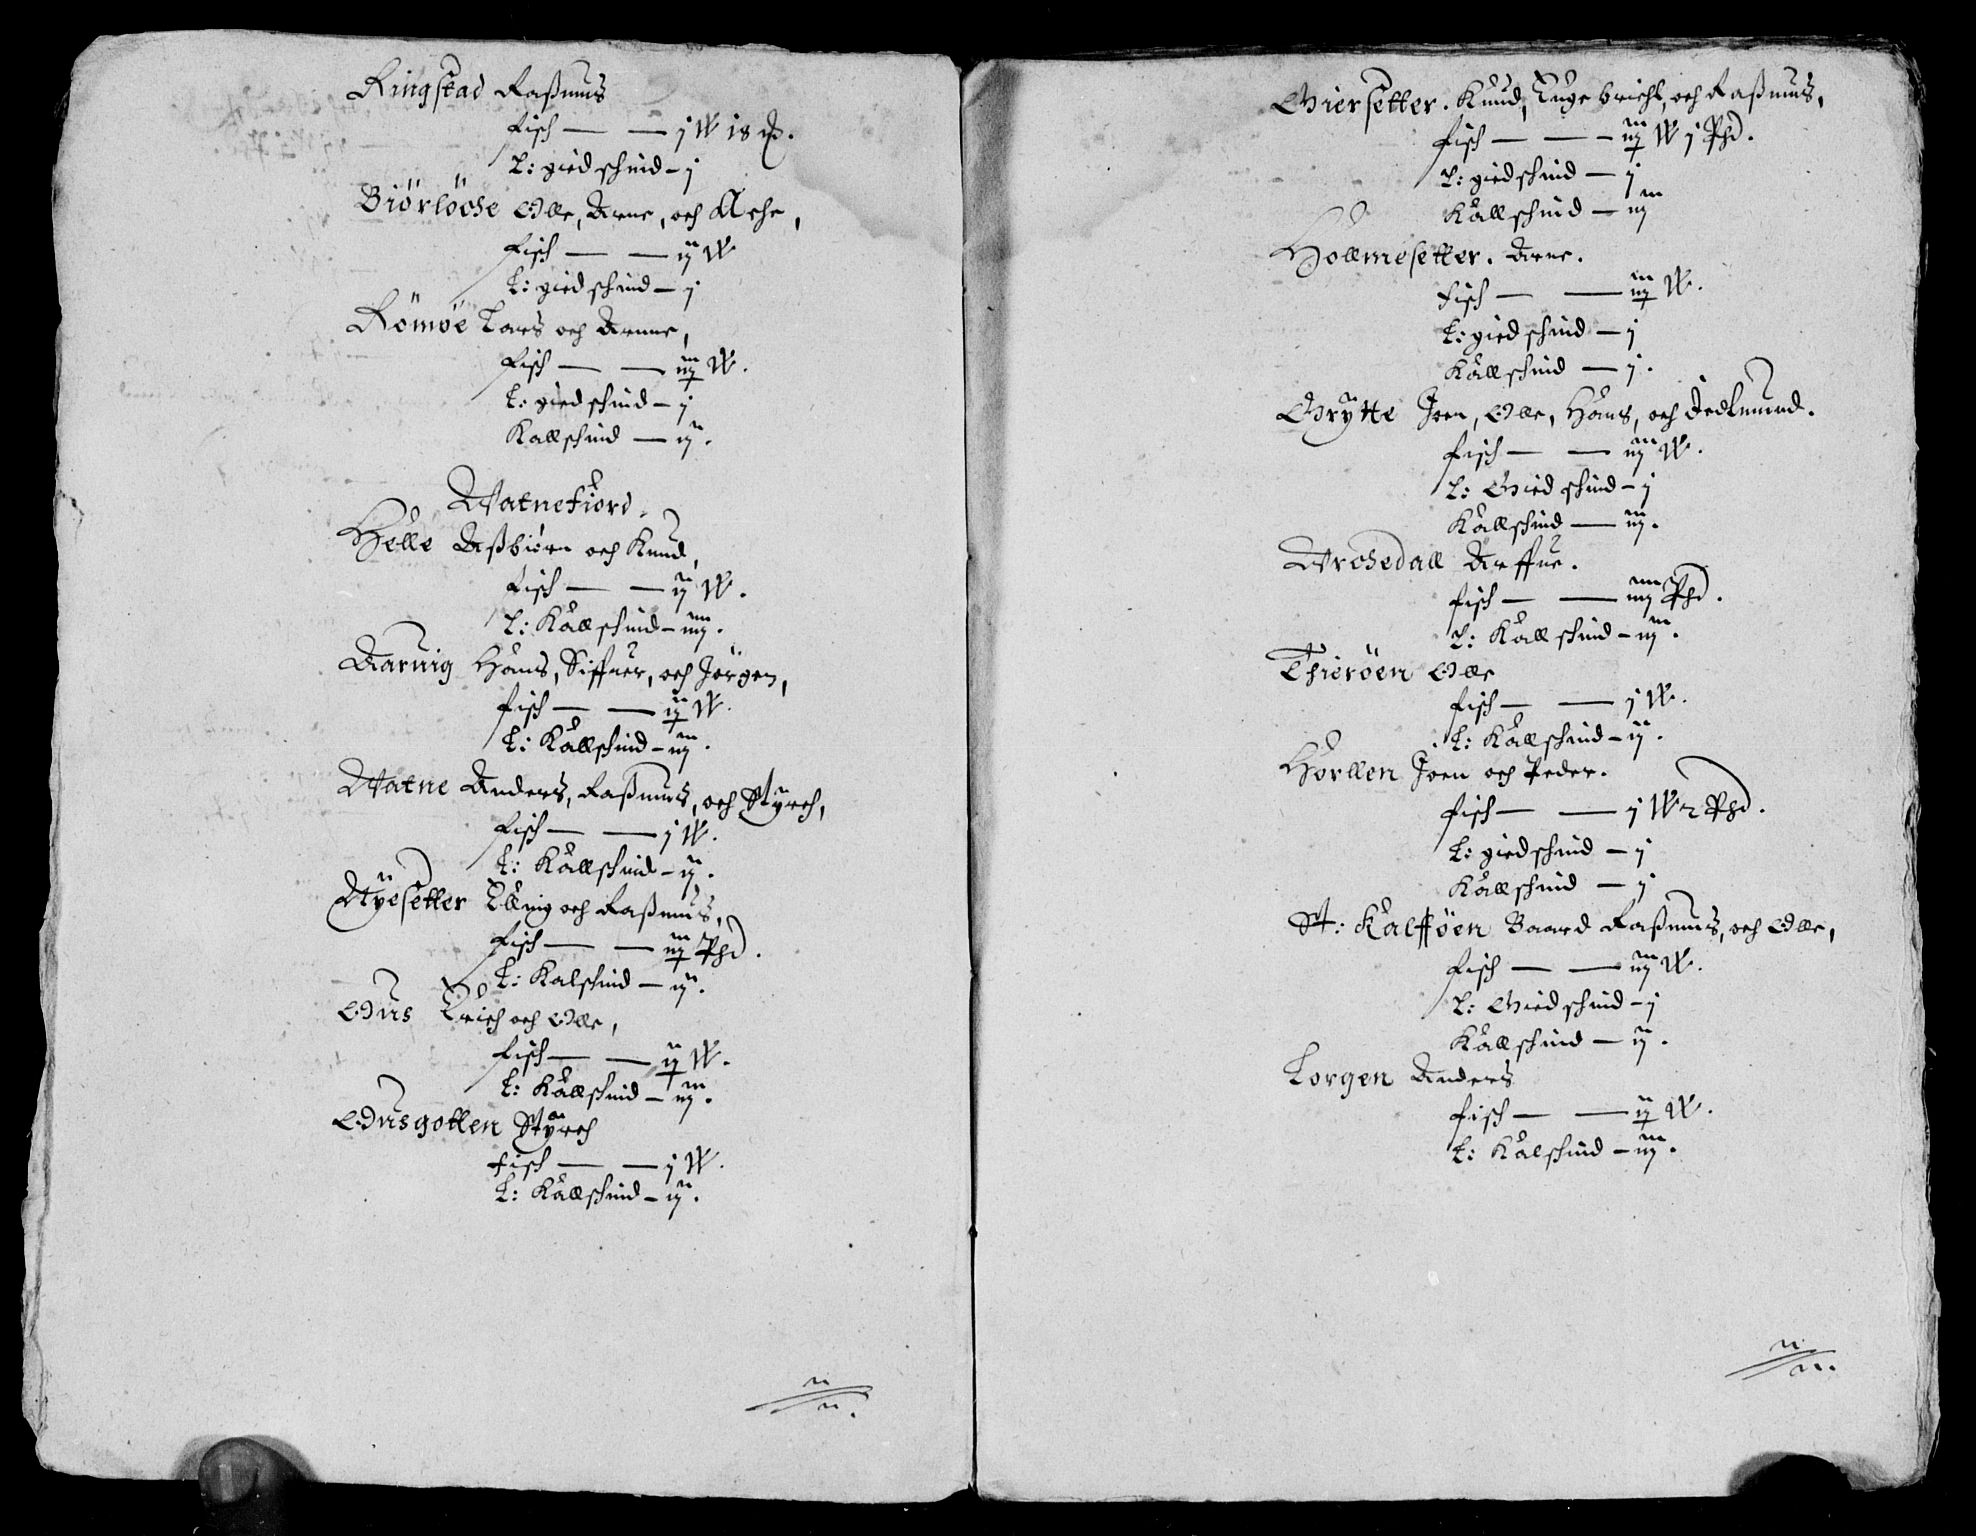 Ringstad Raßmus
fisch — — j W 18 ℔.
L: giedschind – j
Biörlöche Olle, Arne, och Ache,
fisch — — ij W
L: giedschind – j
Römöe Lars och Arnne,
fisch — — iij W.
L: giedschind – j
Kallschind — ij.
Watnefiord.
Helle Aßbiörn och Knud,
fisch — — ij W.
L: Kallschind – iiij.
Aarvig Hans, Siffuer, och Jörgen,
fisch — — ij W.
L: Kallschind – iij.
Watne Anders, Raßmus, och Styrch,
fisch — — j W.
L: Kallschind – ij.
Nyesetter Elling och Raßmus,
fisch — — iij Phd.
L: Kalschind – ij.
Ous Erich och Olle,
fisch — — ij W.
L: Kallschind – iij.
Ousgotten Styrch
fisch — — j W.
L: Kallschind – ij.
Giersetter. Knud, Ingebricht, och Raßmus,
fisch — — iij W j Phd.
L: giedschind – j
Kallschind – iij
Hollmesetter. Arne.
fisch — — iij W.
L: giedschind – j
Kallschind – j.
Grytte Joen, Olle, Hans, och Jedtmund.
fisch — — iij W.
L: Giedschind – j
Kallschind — iij.
Archedall Arffue.
fisch — — iiij Phd.
L: Kallschind – iij.
Thieröen Olle
fisch — — j W.
L: Kallschind – ij.
Horllen Joen och Peder.
fisch — — j W 2 Phd.
L: giedschind – j
Kallschind – j
St: Kalfföen Baard Raßmus, och Olle,
fisch — — iij W.
L: Giedschind – j
Kallschind – ij.
Lorgen Anders
fisch — — ij W.
L: Kalschind – iij.